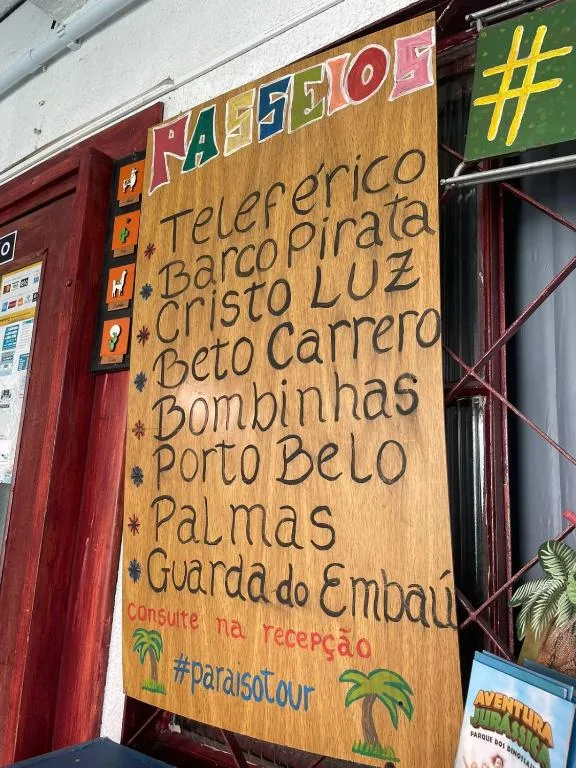 PASSEIOS
#
Teleférico
Barco Pirata
Cristo Luz
Beto Carrero
Bombinhas
Porto Belo
Palmas
Guarda do Embaú
consulte na recepção
#paraisotour
AVENTURA
JURÁSSICA
PARQUE DOS DINOSSAUROS